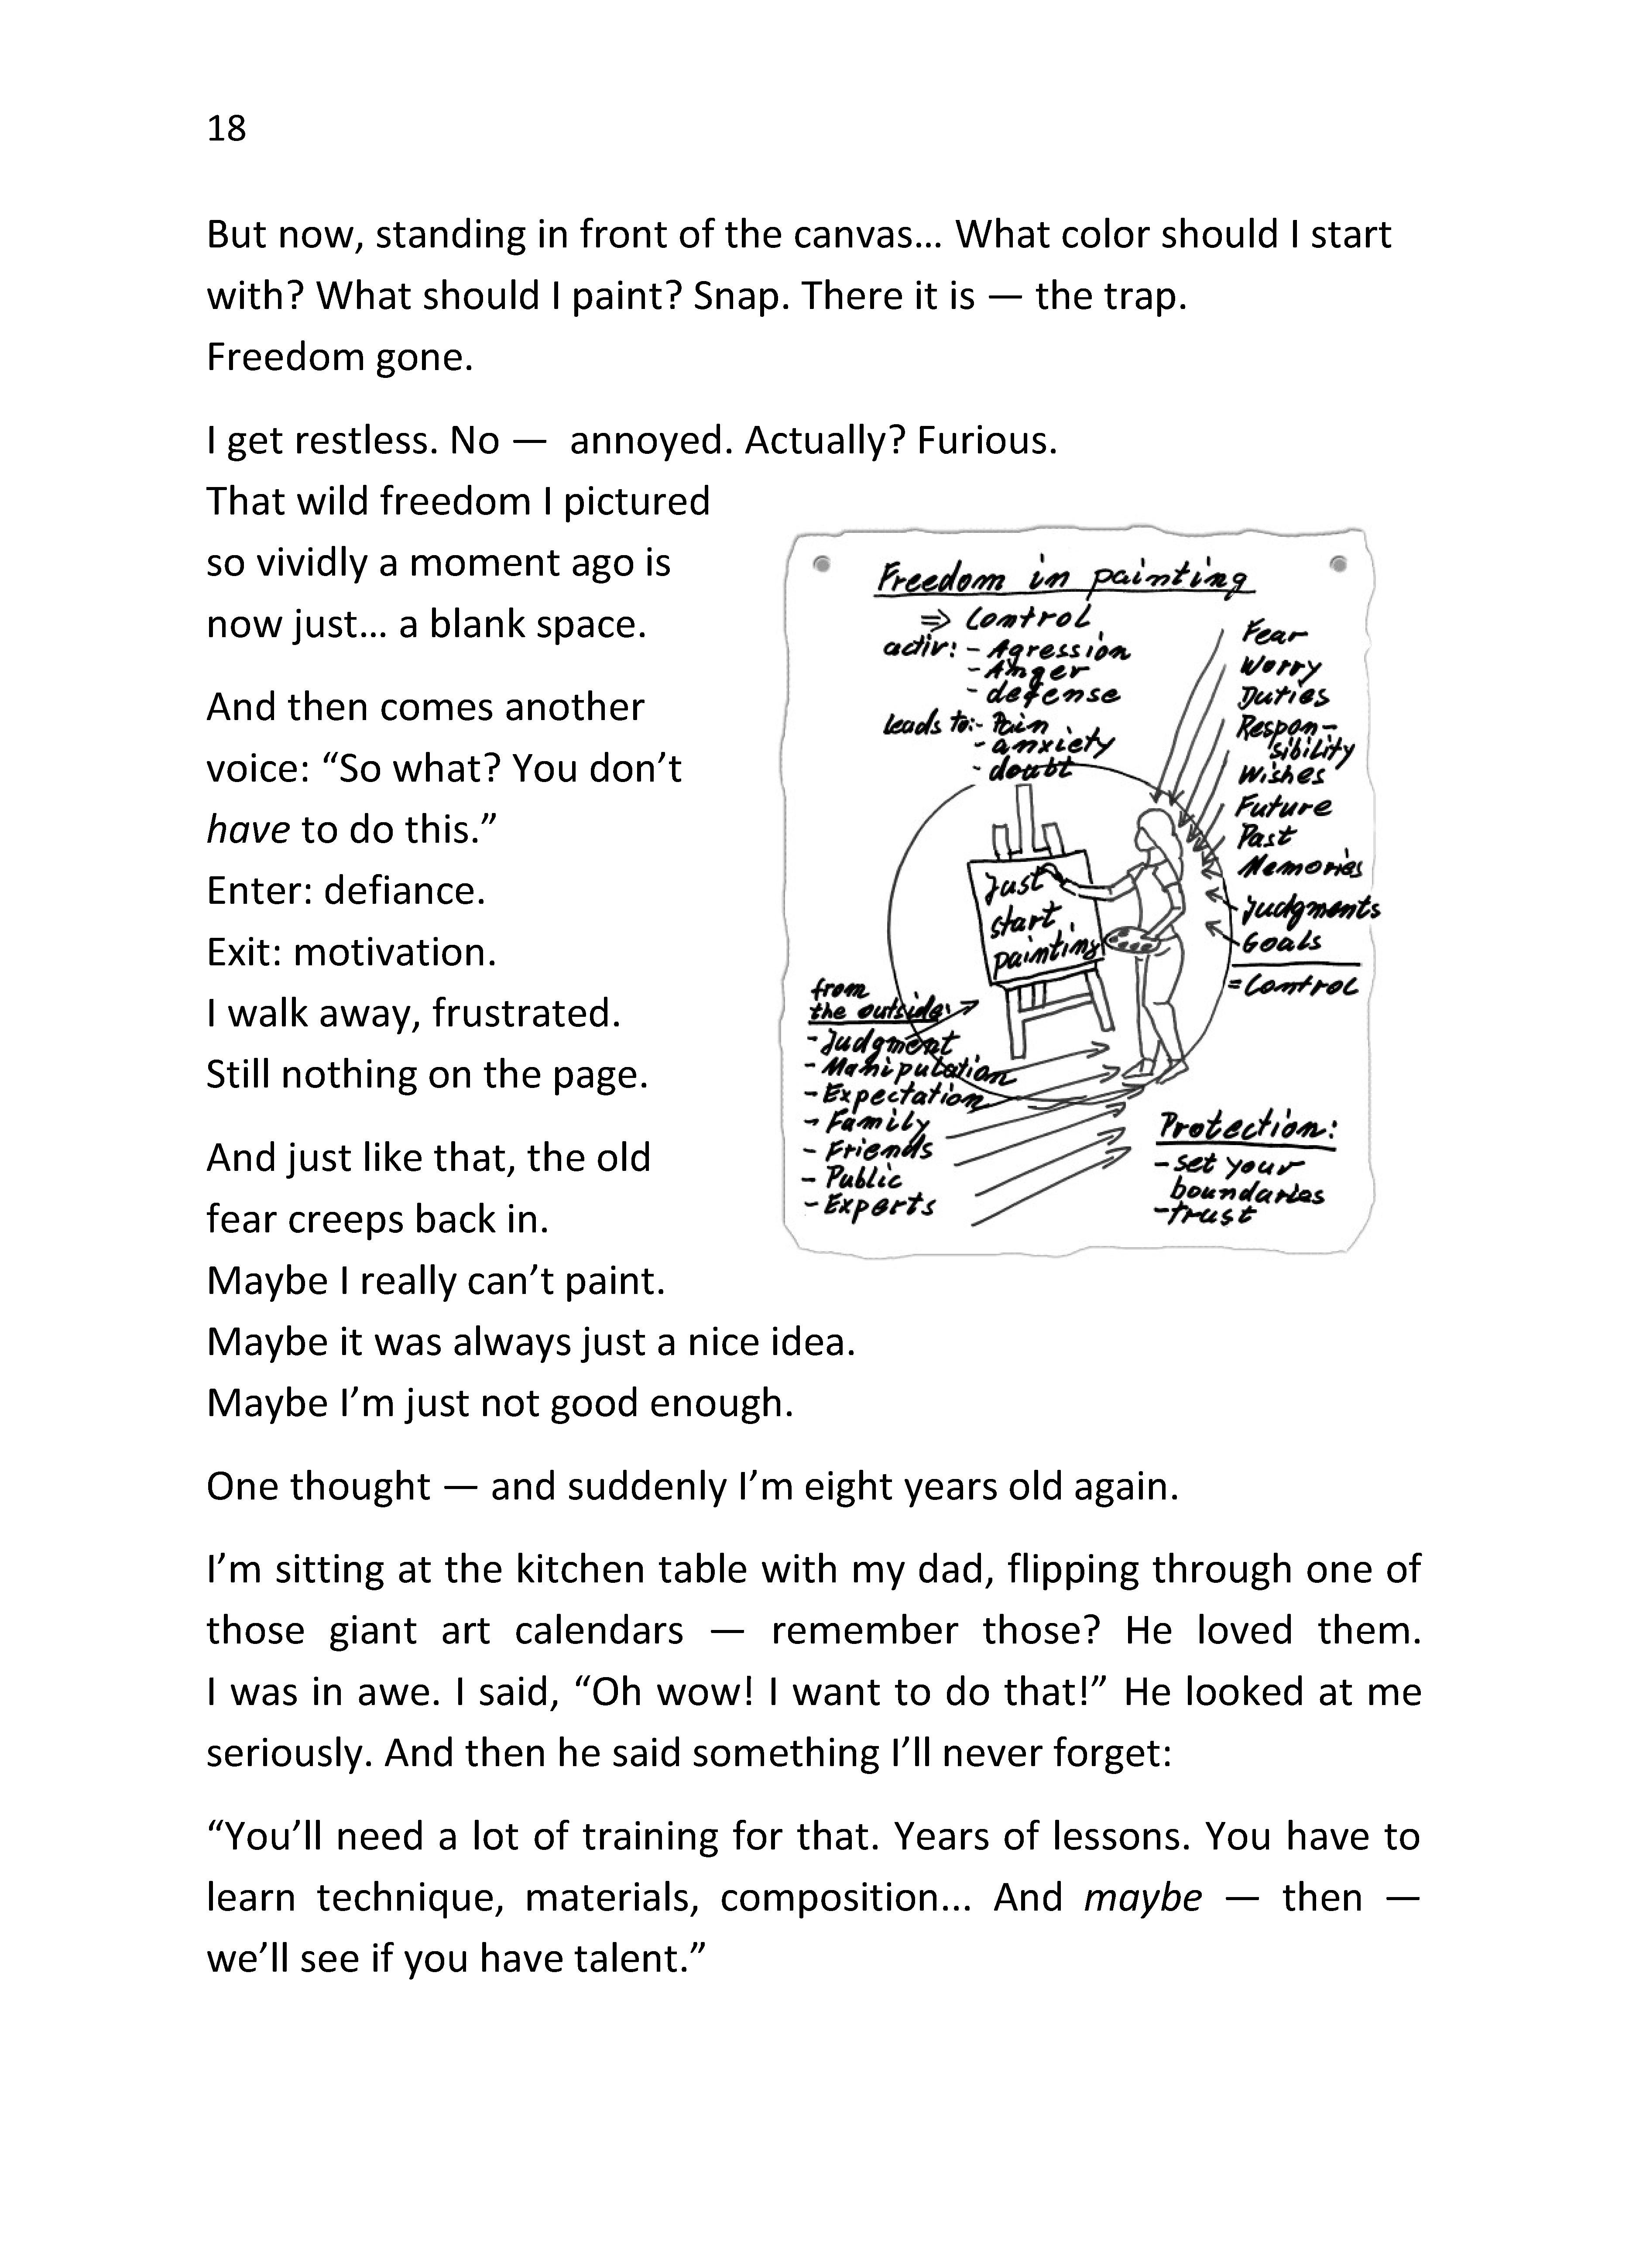 18
But now, standing in front of the canvas… What color should I start
with? What should I paint? Snap. There it is — the trap.
Freedom gone.
I get restless. No — annoyed. Actually? Furious.
That wild freedom I pictured
so vividly a moment ago is
now just… a blank space.
And then comes another
voice: “So what? You don’t
have to do this.”
Enter: defiance.
Exit: motivation.
I walk away, frustrated.
Still nothing on the page.
And just like that, the old
fear creeps back in.
Maybe I really can’t paint.
Maybe it was always just a nice idea.
Maybe I’m just not good enough.
Freedom in painting
⇒ Control
activ: - Agression
- Anger
- defense
leads to: - Pain
- anxiety
- doubt
Fear
Worry
Duties
Respon-
sibility
Wishes
Future
Past
Memories
Judgments
Goals
= Control
Just
start
painting
from
the outside:
- Judgment
- Manipulation
- Expectation
- Family
- Friends
- Public
- Experts
Protection:
- set your
boundaries
- trust
One thought — and suddenly I’m eight years old again.
I’m sitting at the kitchen table with my dad, flipping through one of
those giant art calendars — remember those? He loved them.
I was in awe. I said, “Oh wow! I want to do that!” He looked at me
seriously. And then he said something I’ll never forget:
“You’ll need a lot of training for that. Years of lessons. You have to
learn technique, materials, composition… And maybe — then —
we’ll see if you have talent.”